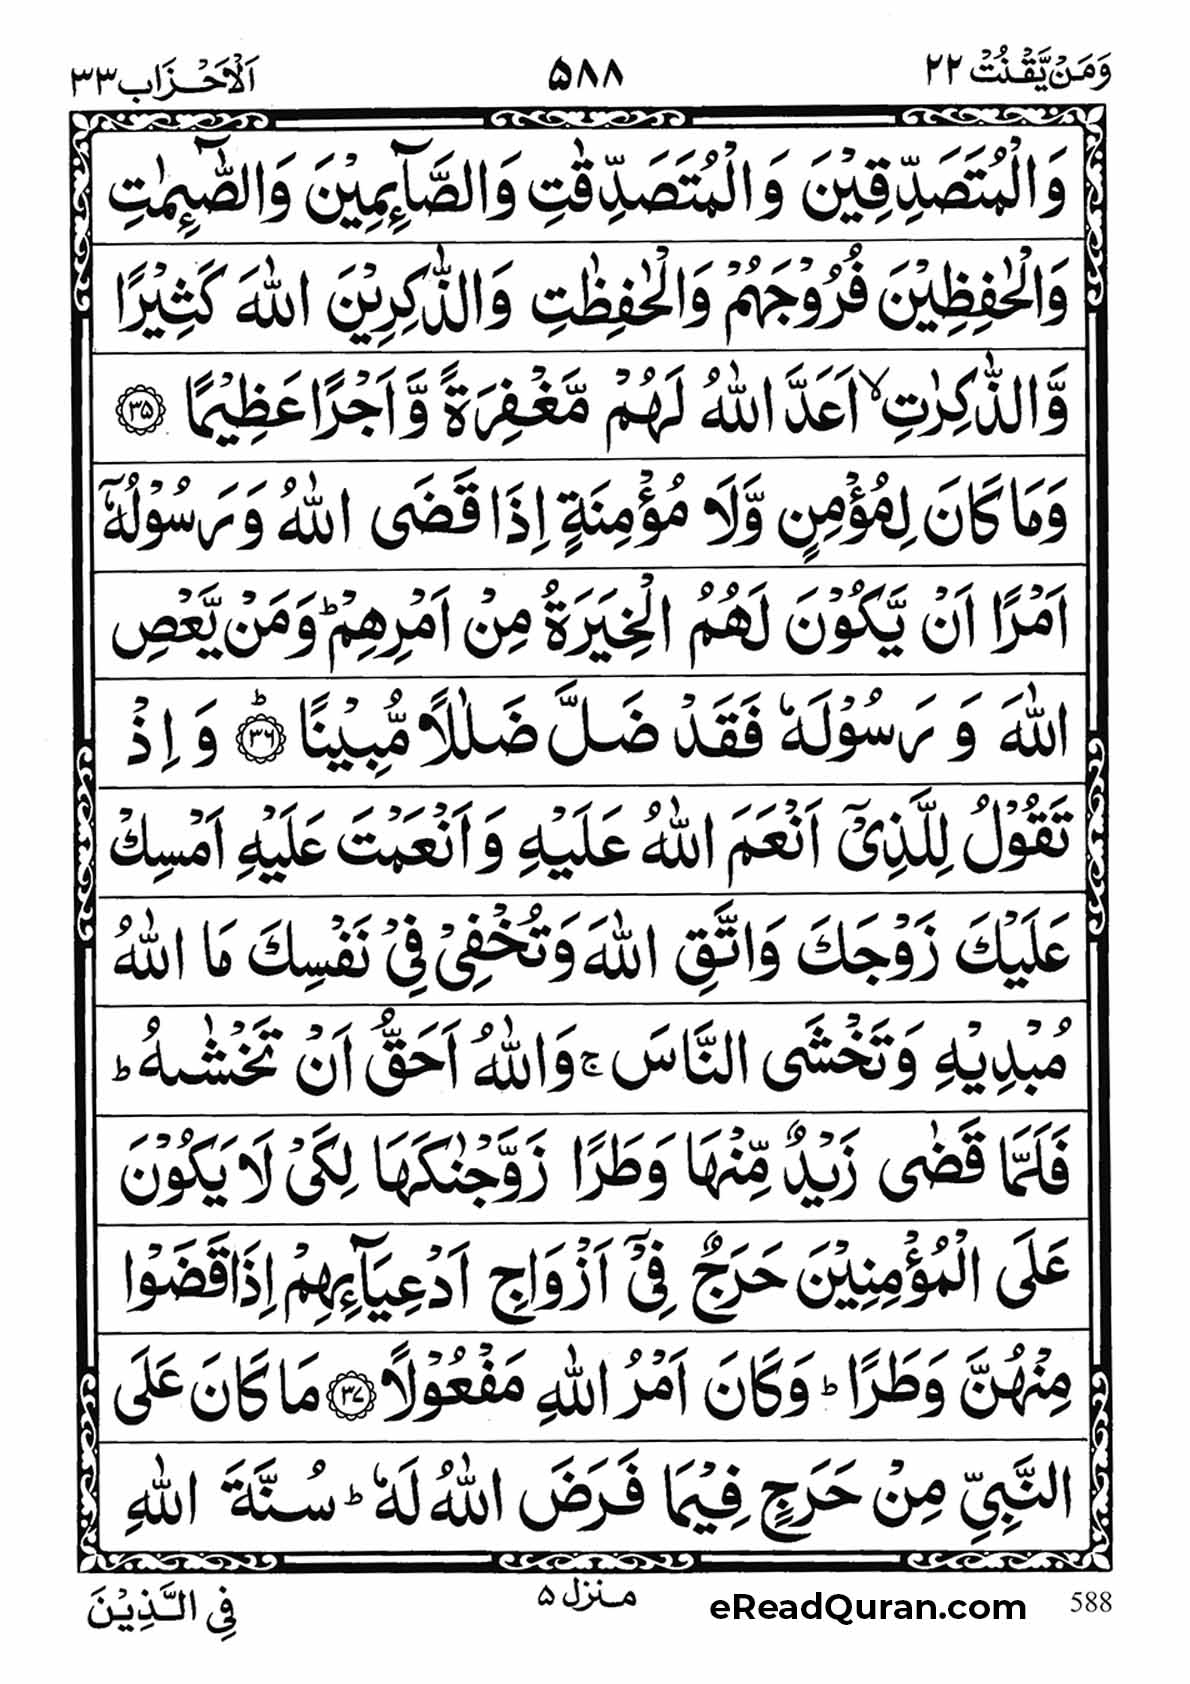 وَمَنْ يَّقْنُتْ ٢٢ ٥٨٨ اَلْاَحْزَاب ٣٣
وَالْمُتَصَدِّقِيْنَ وَالْمُتَصَدِّقٰتِ وَالصَّآئِمِيْنَ وَالصّٰٓئِمٰتِ
وَالْحٰفِظِيْنَ فُرُوْجَهُمْ وَالْحٰفِظٰتِ وَالذّٰكِرِيْنَ اللّٰهَ كَثِيْرًا
وَّالذّٰكِرٰتِ ۙ اَعَدَّ اللّٰهُ لَهُمْ مَّغْفِرَةً وَّاَجْرًا عَظِيْمًا ۝٣٥
وَمَا كَانَ لِمُؤْمِنٍ وَّلَا مُؤْمِنَةٍ اِذَا قَضَى اللّٰهُ وَرَسُوْلُهٗٓ
اَمْرًا اَنْ يَّكُوْنَ لَهُمُ الْخِيَرَةُ مِنْ اَمْرِهِمْ ؕ وَمَنْ يَّعْصِ
اللّٰهَ وَرَسُوْلَهٗ فَقَدْ ضَلَّ ضَلٰلًا مُّبِيْنًا ؕ ۝٣٦ وَاِذْ
تَقُوْلُ لِلَّذِيْٓ اَنْعَمَ اللّٰهُ عَلَيْهِ وَاَنْعَمْتَ عَلَيْهِ اَمْسِكْ
عَلَيْكَ زَوْجَكَ وَاتَّقِ اللّٰهَ وَتُخْفِيْ فِيْ نَفْسِكَ مَا اللّٰهُ
مُبْدِيْهِ وَتَخْشَى النَّاسَ ۚ وَاللّٰهُ اَحَقُّ اَنْ تَخْشٰىهُ ؕ
فَلَمَّا قَضٰى زَيْدٌ مِّنْهَا وَطَرًا زَوَّجْنٰكَهَا لِكَيْ لَا يَكُوْنَ
عَلَى الْمُؤْمِنِيْنَ حَرَجٌ فِيْٓ اَزْوَاجِ اَدْعِيَآئِهِمْ اِذَا قَضَوْا
مِنْهُنَّ وَطَرًا ؕ وَكَانَ اَمْرُ اللّٰهِ مَفْعُوْلًا ۝٣٧ مَا كَانَ عَلَى
النَّبِيِّ مِنْ حَرَجٍ فِيْمَا فَرَضَ اللّٰهُ لَهٗ ؕ سُنَّةَ اللّٰهِ
588 eReadQuran.com منزل ٥ فِي الَّذِيْنَ